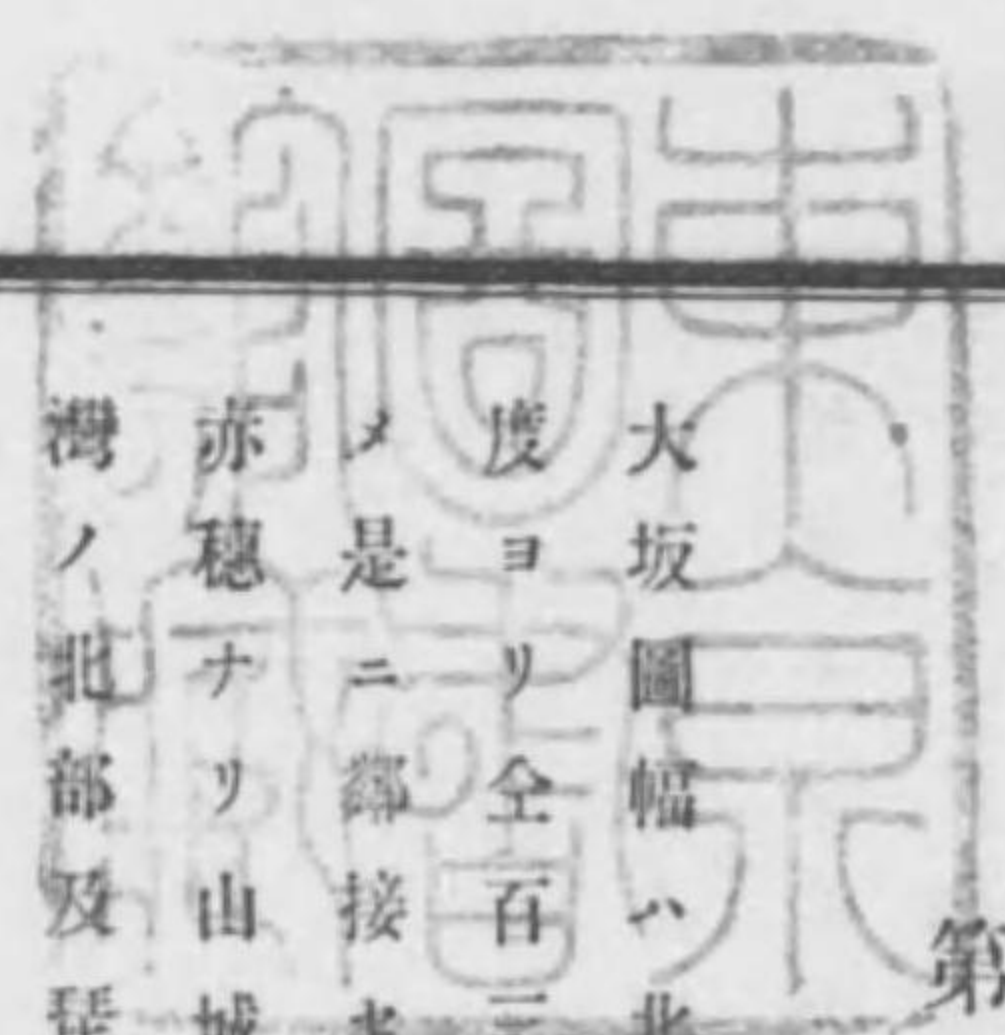 第
大坂圖幅ハ北
度ヨリ仝百三
メ是ニ鄰接セ
赤穗ナリ山城
灣ノ北部及琵
東京
圖書